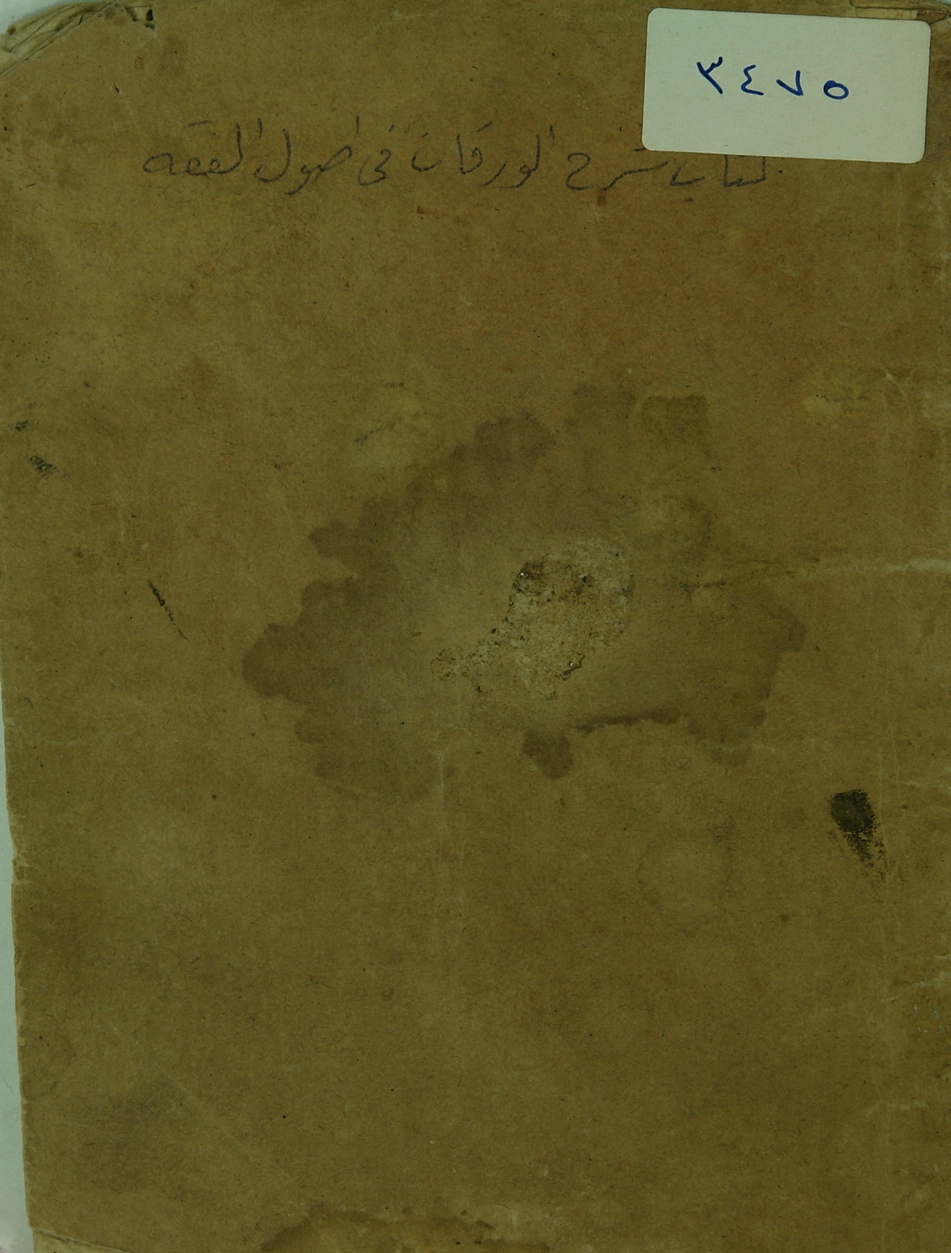 ٣٤٧٥
كتاب شرح الورقات فى اصول الفقه